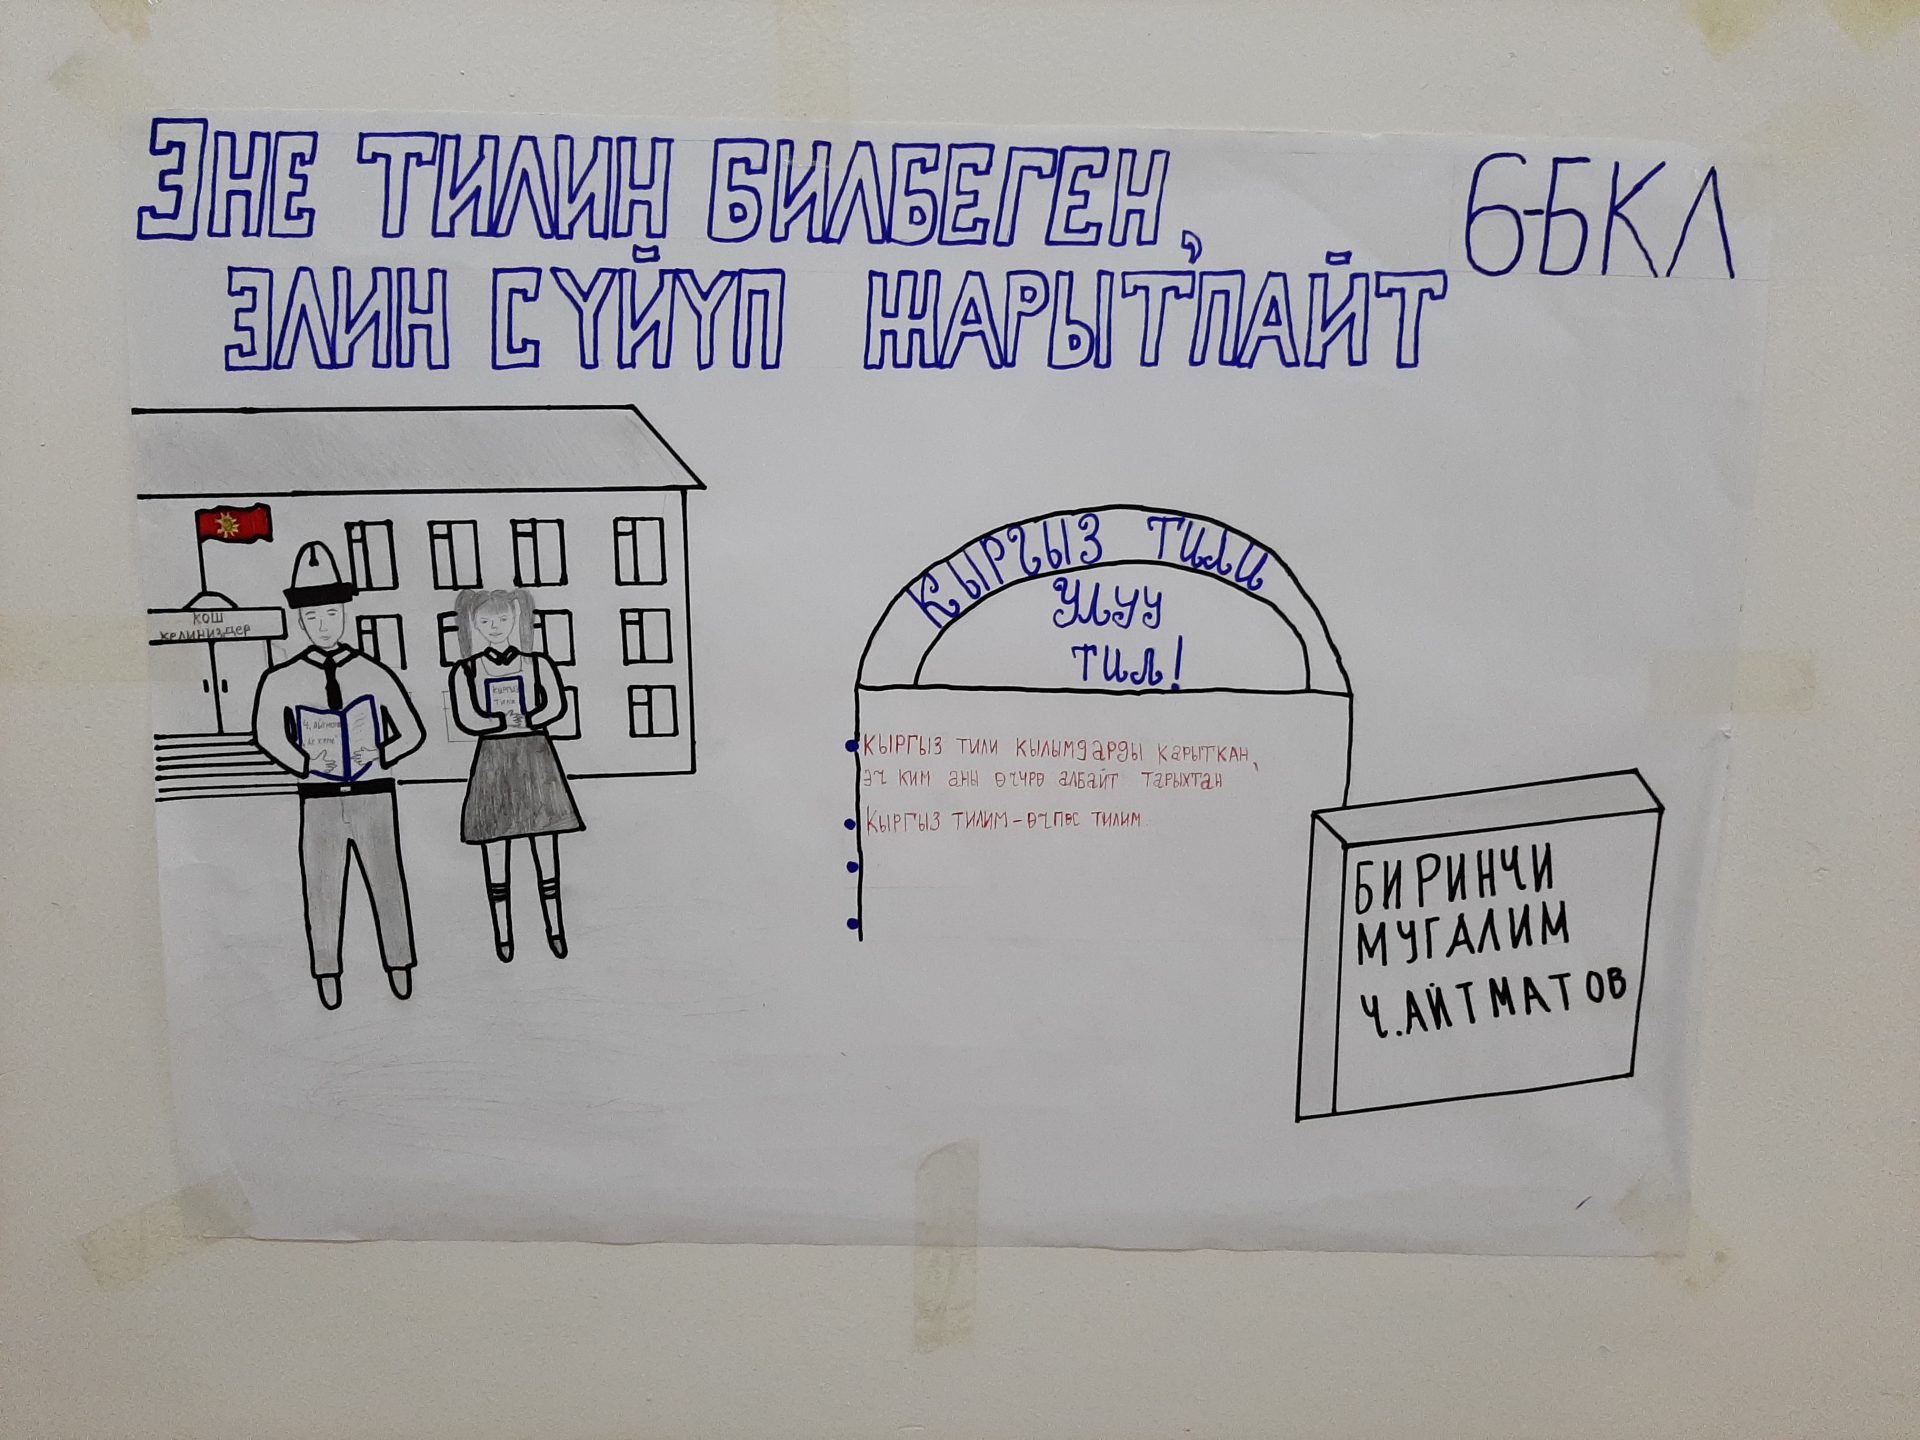 ЭНЕ ТИЛИН БИЛБЕГЕН,
6-Б КЛ
ЭЛИН СҮЙҮП ЖАРЫТПАЙТ
КОШ
КЕЛИНИЗДЕР
Ч. АЙТМАТОВ
КЫРГЫЗ
ТИЛИ
КЫРГЫЗ ТИЛИ
УЛУУ
ТИЛ!
КЫРГЫЗ ТИЛИ КЫЛЫМДАРДЫ КАРЫТКАН,
ЭЧ КИМ АНЫ ӨЧҮРӨ АЛБАЙТ ТАРЫХТАН
КЫРГЫЗ ТИЛИМ-ӨЧПӨС ТИЛИМ
БИРИНЧИ
МУГАЛИМ
Ч.АЙТМАТОВ